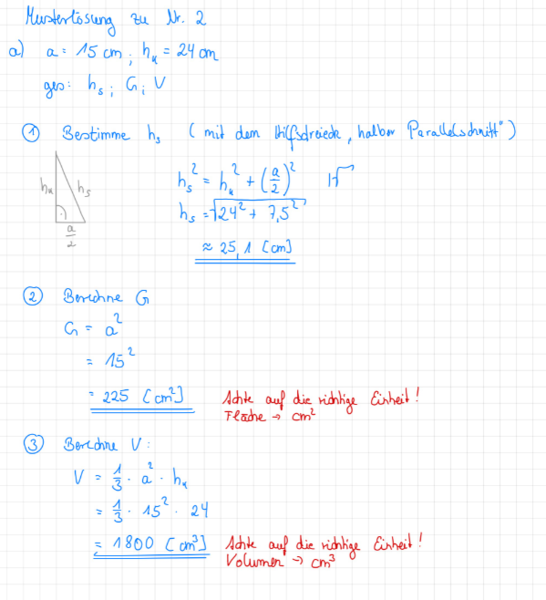 Musterlösung zu Nr. 2
a) a = 15 cm ; hₖ = 24 cm
ges: hₛ ; G ; V
① Bestimme hₛ (mit dem Hilfsdreieck „halber Parallelschnitt")
hₖ hₛ a/2
hₛ² = hₖ² + (a/2)² |√
hₛ = √24² + 7,5²
≈ 25,1 [cm]
② Berechne G
G = a²
= 15²
= 225 [cm²]
Achte auf die richtige Einheit!
Fläche → cm²
③ Berechne V:
V = 1/3 · a² · hₖ
= 1/3 · 15² · 24
= 1800 [cm³]
Achte auf die richtige Einheit!
Volumen → cm³